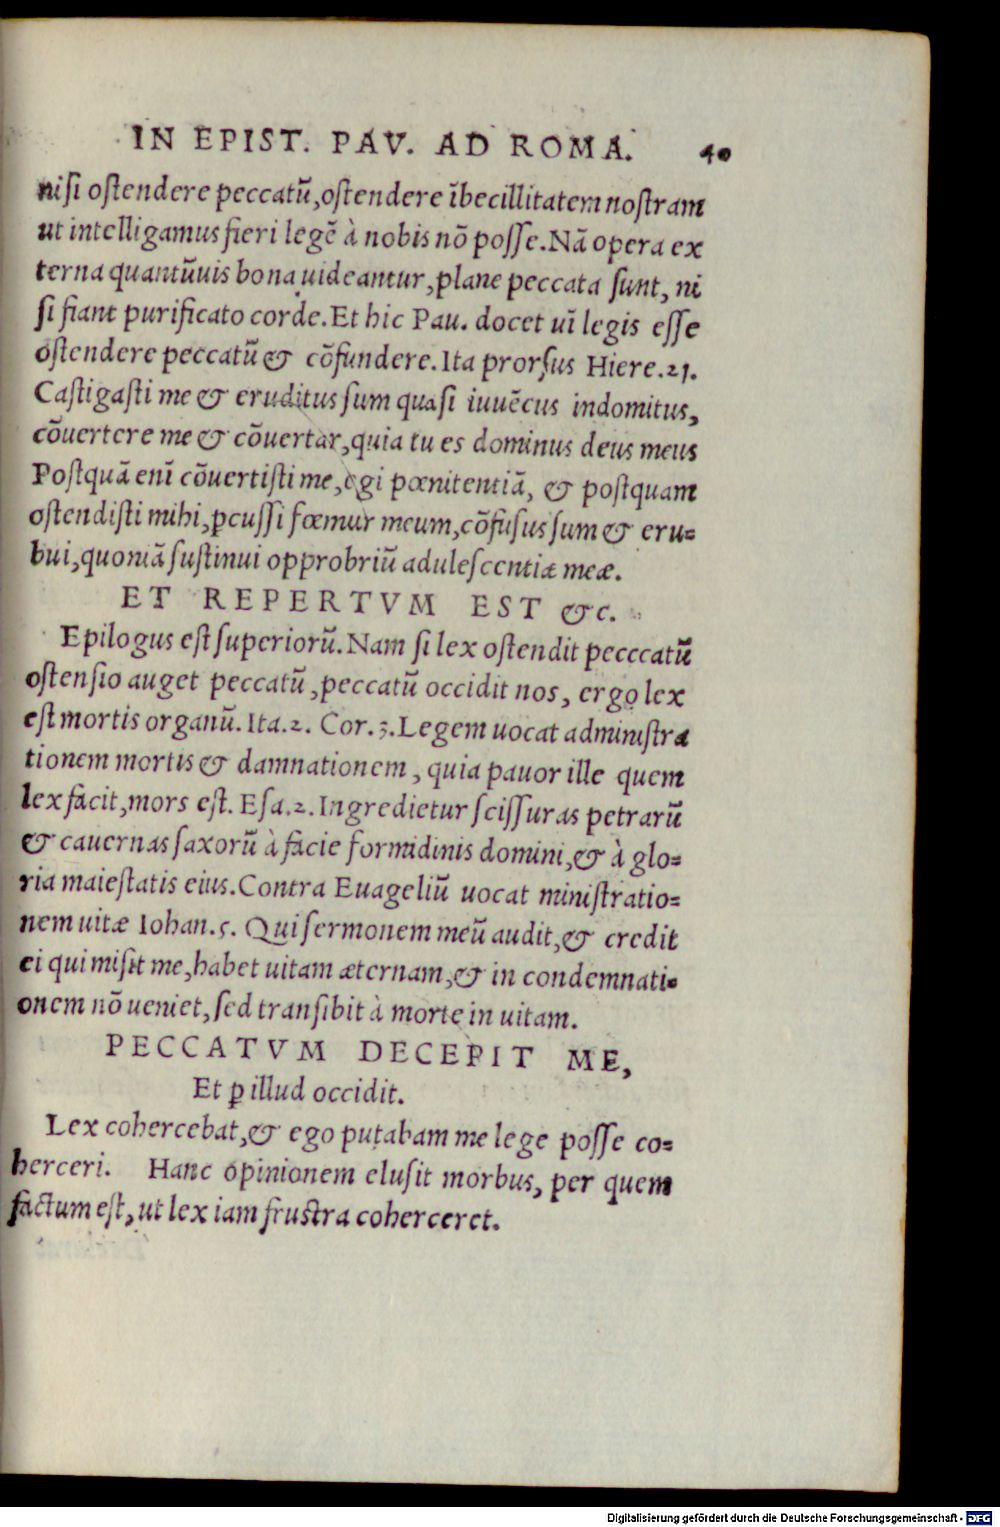 IN EPIST. PAV. AD ROMA. 40
niſi oſtendere peccatū, oſtendere ībecillitatem noſtram
ut intelligamus fieri legē à nobis nō poſſe. Nā opera ex
terna quantūuis bona uideantur, plane peccata ſunt, ni
ſi fiant purificato corde. Et hic Pau. docet uī legis eſſe
oſtendere peccatū & cōfundere. Ita prorſus Hiere. 21.
Caſtigaſti me & eruditus ſum quaſi iuuēcus indomitus,
cōuertere me & cōuertar, quia tu es dominus deus meus
Poſtquā enī cōuertiſti me, egi pœnitentiā, & poſtquam
oſtendiſti mihi, ꝑcuſſi fœmur meum, cōfuſus ſum & eru-
bui, quoniā ſuſtinui opprobriū aduleſcentiæ meæ.
ET REPERTVM EST &c.
Epilogus eſt ſuperiorū. Nam ſi lex oſtendit pecccatū
oſtenſio auget peccatū, peccatū occidit nos, ergo lex
eſt mortis organū. Ita. 2. Cor. 3. Legem uocat adminiſtra
tionem mortis & damnationem, quia pauor ille quem
lex facit, mors eſt. Eſa. 2. Ingredietur ſciſſuras petrarū
& cauernas ſaxorū à facie formidinis domini, & à glo-
ria maieſtatis eius. Contra Euageliū uocat miniſtratio-
nem uitæ Iohan. 5. Qui ſermonem meū audit, & credit
ei qui miſit me, habet uitam æternam, & in condemnati-
onem nō ueniet, ſed tranſibit à morte in uitam.
PECCATVM DECEPIT ME,
Et ꝑ illud occidit.
Lex cohercebat, & ego putabam me lege poſſe co-
herceri. Hanc opinionem eluſit morbus, per quem
factum eſt, ut lex iam fruſtra coherceret.
Digitalisierung gefördert durch die Deutsche Forschungsgemeinschaft - DFG